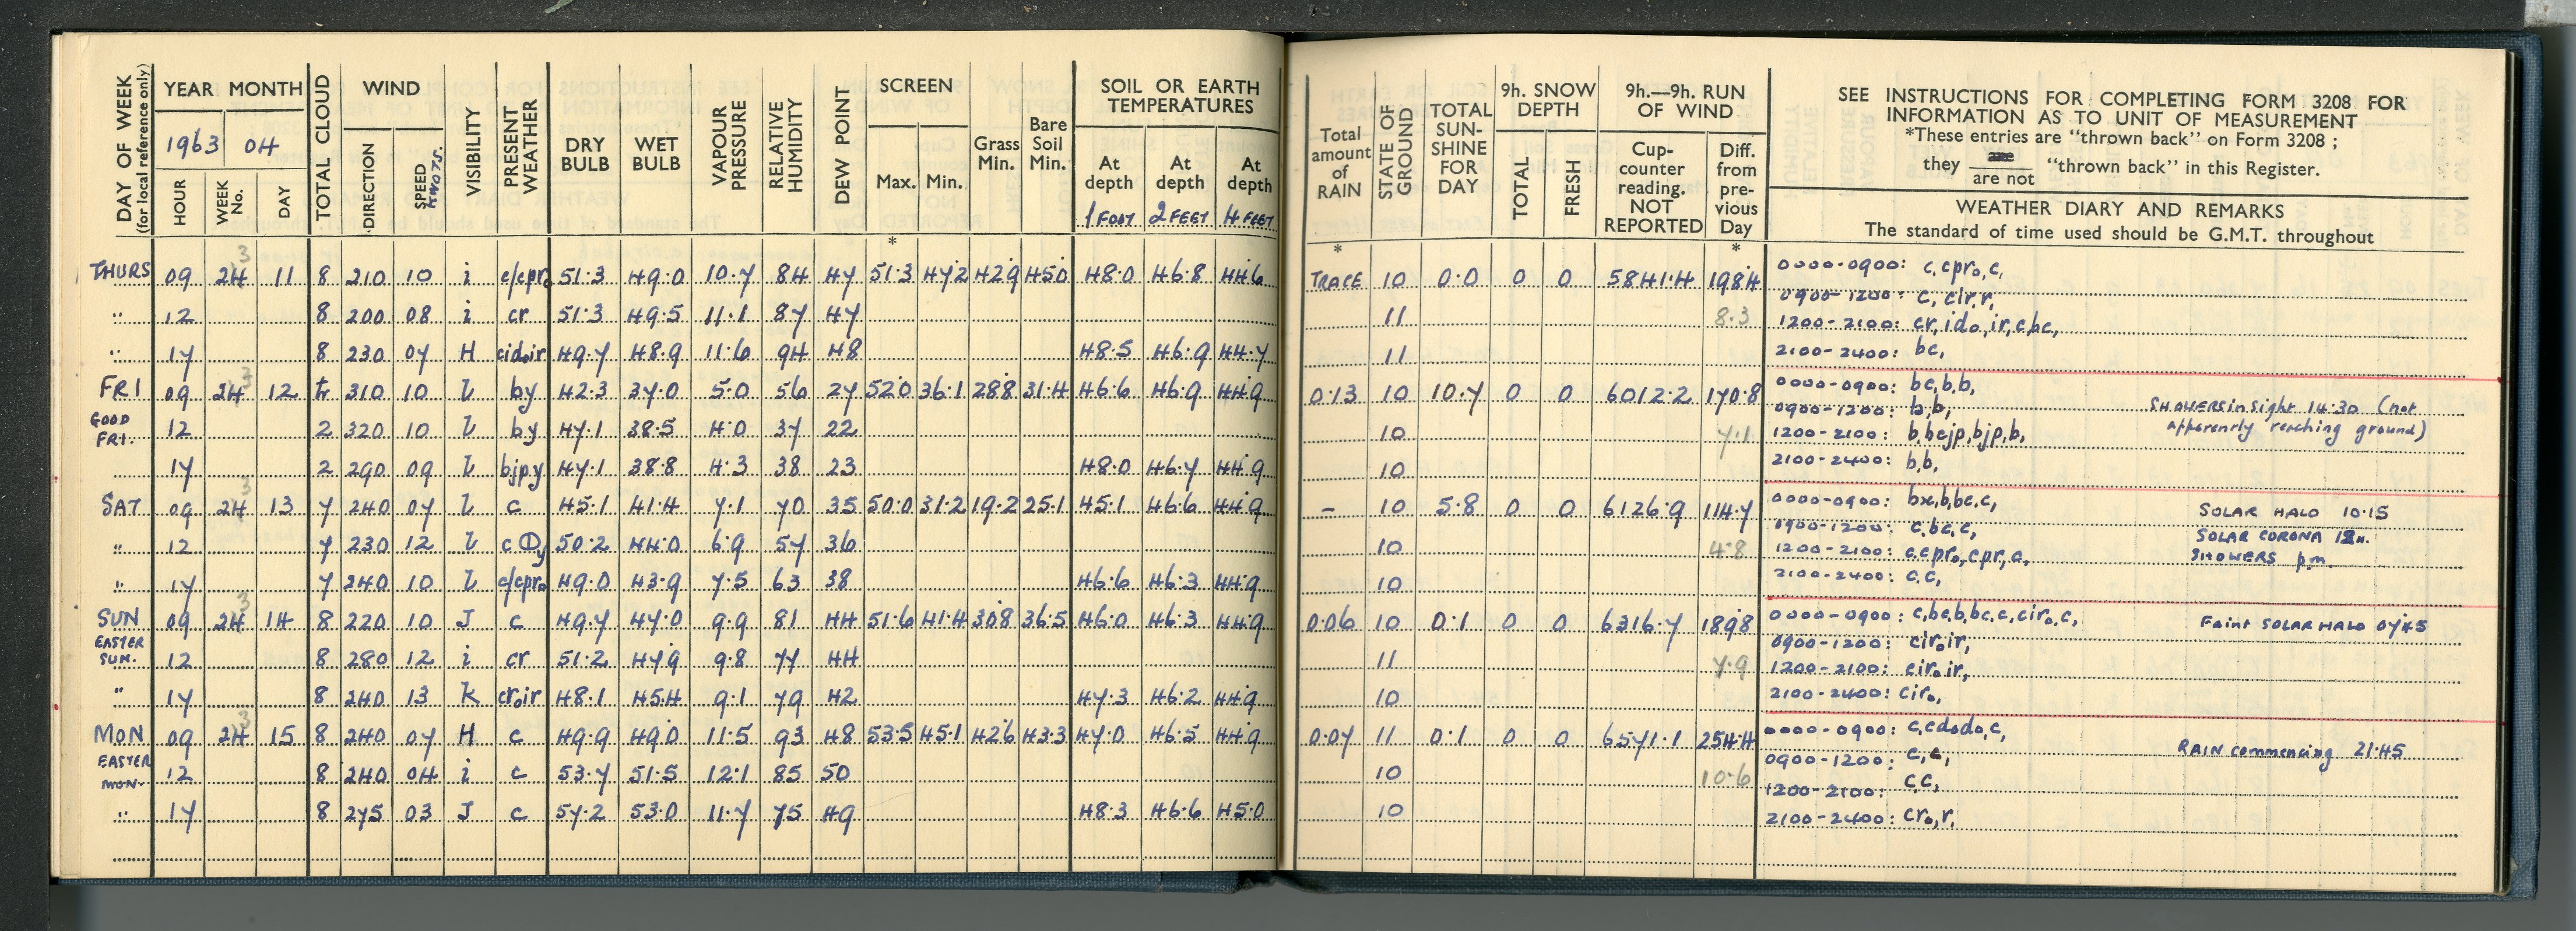 DAY OF WEEK (for local reference only)
YEAR MONTH
1963 04
HOUR WEEK No. DAY
TOTAL CLOUD
WIND
DIRECTION SPEED KNOTS.
VISIBILITY
PRESENT WEATHER
DRY BULB
WET BULB
VAPOUR PRESSURE
RELATIVE HUMIDITY
DEW POINT
SCREEN
Max. Min.
Grass Min.
Bare Soil Min.
SOIL OR EARTH TEMPERATURES
At depth 1 FOOT
At depth 2 FEET
At depth 4 FEET
*
3
THURS 09 24 11 8 210 10 i c/cpr₀ 51.3 49.0 10.7 84 47 51.3 47.2 42.9 45.0 48.0 46.8 44.6
" 12 8 200 08 i cr 51.3 49.5 11.1 87 47
" 17 8 230 07 H cid₀ir 49.7 48.9 11.6 94 48 48.5 46.9 44.7
3
FRI 09 24 12 310 10 l by 42.3 37.0 5.0 56 27 52.0 36.1 28.8 31.4 46.6 46.9 44.9
GOOD FRI. 12 2 320 10 l by 47.1 38.5 4.0 37 22
17 2 290 09 l bjpy 47.1 38.8 4.3 38 23 48.0 46.7 44.9
3
SAT 09 24 13 7 240 07 l c 45.1 41.4 7.1 70 35 50.0 31.2 19.2 25.1 45.1 46.6 44.9
" 12 7 230 12 l c⦶y 50.2 44.0 6.9 57 36
" 17 7 240 10 l c/cpr₀ 49.0 43.9 7.5 63 38 46.6 46.3 44.9
3
SUN 09 24 14 8 220 10 J c 49.7 47.0 9.9 81 44 51.6 41.4 30.8 36.5 46.0 46.3 44.9
EASTER SUN. 12 8 280 12 i cr 51.2 47.9 9.8 77 44
" 17 8 240 13 K cr₀ir 48.1 45.4 9.1 79 42 47.3 46.2 44.9
3
MON 09 24 15 8 240 07 H c 49.9 49.0 11.5 93 48 53.5 45.1 42.6 43.3 47.0 46.5 44.9
EASTER MON. 12 8 240 04 i c 53.7 51.5 12.1 85 50
" 17 8 275 03 J c 57.2 53.0 11.7 75 49 48.3 46.6 45.0
Total amount of RAIN
STATE OF GROUND
TOTAL SUN-SHINE FOR DAY
9h. SNOW DEPTH
TOTAL FRESH
9h.—9h. RUN OF WIND
Cup-counter reading. NOT REPORTED
Diff. from pre-vious Day
SEE INSTRUCTIONS FOR COMPLETING FORM 3208 FOR
INFORMATION AS TO UNIT OF MEASUREMENT
*These entries are "thrown back" on Form 3208 ;
they are / are not "thrown back" in this Register.
WEATHER DIARY AND REMARKS
The standard of time used should be G.M.T. throughout
* *
TRACE 10 0.0 0 0 5841.4 198.4 0000-0900: c,cpr₀,c,
0900-1200: c, cir,r,
11 8.3 1200-2100: cr,id₀,ir,c,bc,
11 2100-2400: bc,
0.13 10 10.7 0 0 6012.2 170.8 0000-0900: bc,b,b,
0900-1200: b,b, SHOWERS in sight 14:30 (not
10 7.1 1200-2100: b,bcjp,bjp,b, apparently reaching ground)
10 2100-2400: b,b,
- 10 5.8 0 0 6126.9 114.7 0000-0900: bx,b,bc,c, SOLAR HALO 10.15
0900-1200: c,bc,c, SOLAR CORONA 12H.
10 4.8 1200-2100: c,cpr₀,cpr,c, SHOWERS p.m.
10 2100-2400: c,c,
0.06 10 0.1 0 0 6316.7 189.8 0000-0900: c,bc,b,bc,c,cir₀,c, Faint SOLAR HALO 0745
0900-1200: cir₀ir,
11 7.9 1200-2100: cir₀ir,
10 2100-2400: cir₀,
0.07 11 0.1 0 0 6571.1 254.4 0000-0900: c,cd₀d₀,c,
0900-1200: c,c, RAIN commencing 21.45
10 10.6 1200-2100: c,c,
10 2100-2400: cr₀,r,